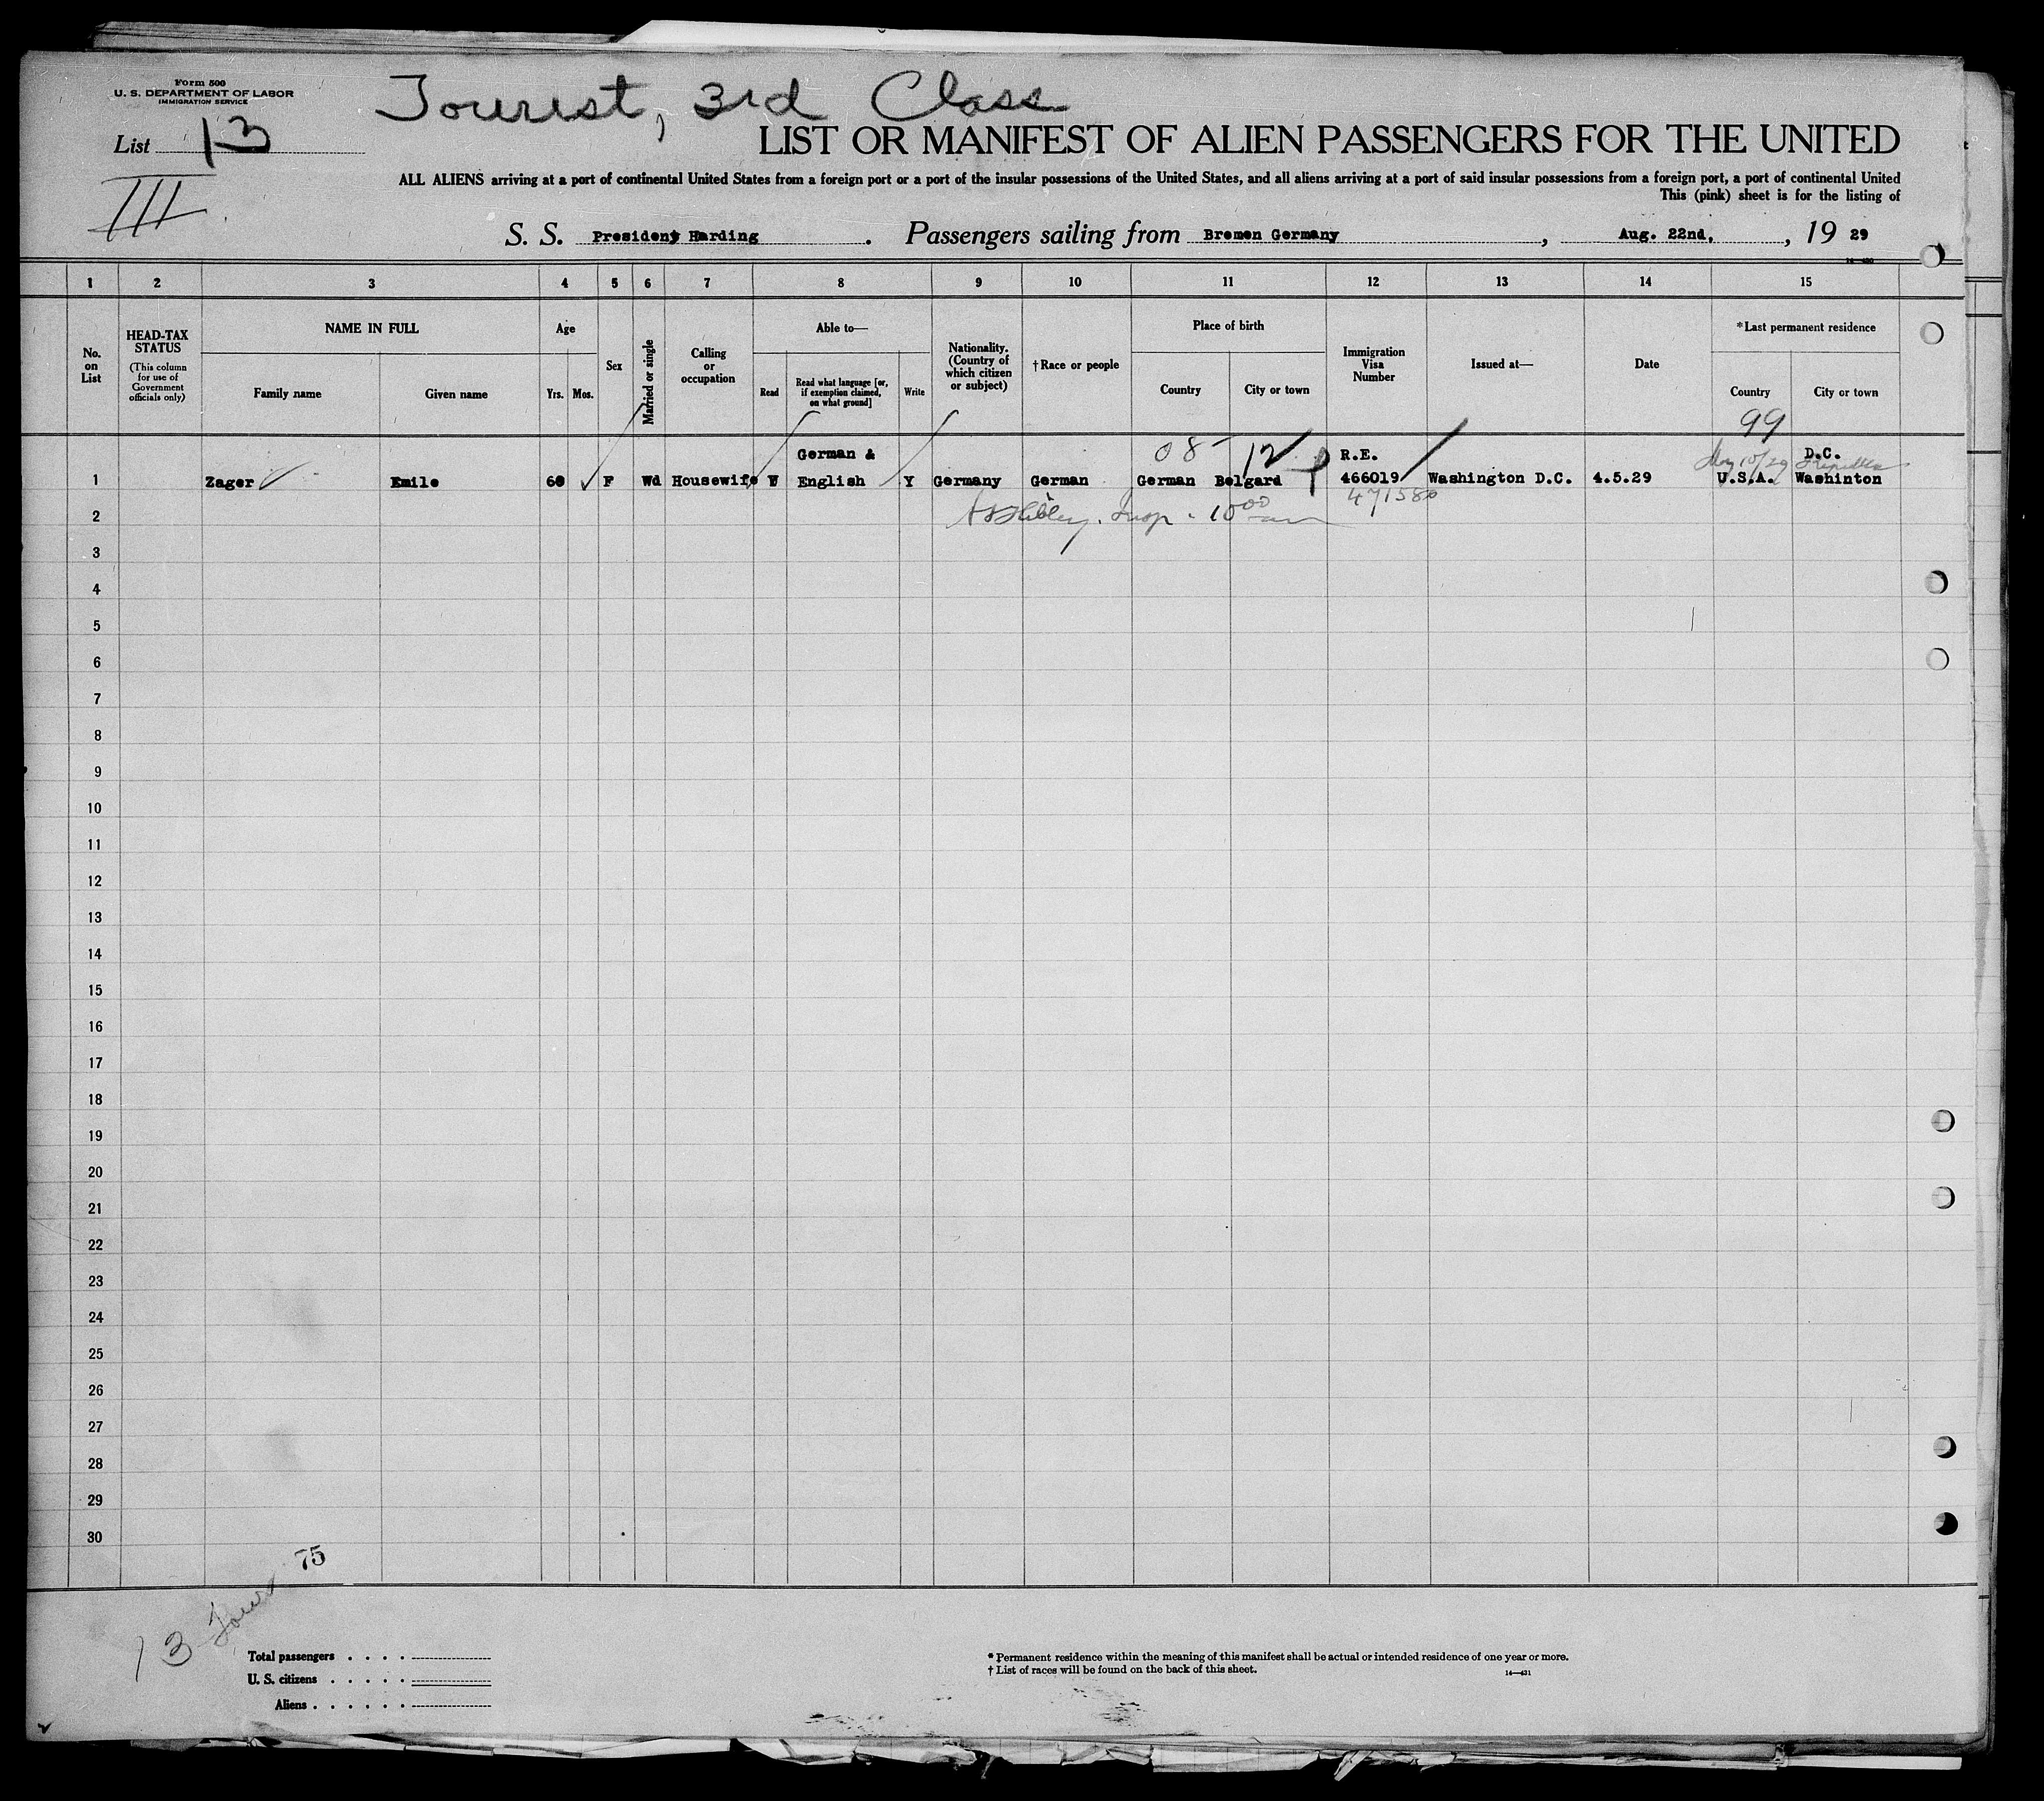 Form 500
U. S. DEPARTMENT OF LABOR
IMMIGRATION SERVICE
Tourist, 3rd Class
List 13
LIST OR MANIFEST OF ALIEN PASSENGERS FOR THE UNITED
III
ALL ALIENS arriving at a port of continental United States from a foreign port or a port of the insular possessions of the United States, and all aliens arriving at a port of said insular possessions from a foreign port, a port of continental United
This (pink) sheet is for the listing of
S. S. President Harding . Passengers sailing from Bremen Germany , Aug. 22nd, , 19 29
1 2 3 4 5 6 7 8 9 10 11 12 13 14 15
No. on List
HEAD-TAX STATUS
(This column for use of Government officials only)
NAME IN FULL
Family name Given name
Age
Yrs. Mos.
Sex
Married or single
Calling or occupation
Able to—
Read
Read what language [or, if exemption claimed, on what ground]
Write
Nationality. (Country of which citizen or subject)
†Race or people
Place of birth
Country City or town
Immigration Visa Number
Issued at—
Date
*Last permanent residence
Country City or town
99
08 - 12
German & R.E. D.C.
May 10/29
1 Zager Emile 60 F Wd Housewife English Y Germany German German Belgard 466019 Washington D.C. 4.5.29 U.S.A. Washinton
471580
2
Insp. 10 00 am
3
4
5
6
7
8
9
10
11
12
13
14
15
16
17
18
19
20
21
22
23
24
25
26
27
28
29
30
75
13 Tour
Total passengers . . . .
U. S. citizens . . . . .
Aliens . . . . . .
* Permanent residence within the meaning of this manifest shall be actual or intended residence of one year or more.
† List of races will be found on the back of this sheet.
14—431